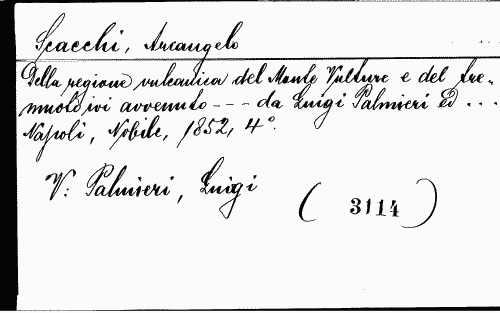 Scacchi, Arcangelo
Della regione vulcanica del Monte Vulture e del tre-
muoto ivi avvenuto --- da Luigi Palmieri ed ...
Napoli, Nobile, 1852, 4°.
V: Palmieri, Luigi
(3114)